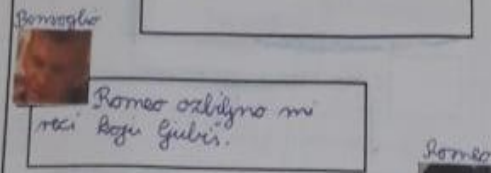 Benvoglio
Romeo ozbiljno mi
reci koga ljubiš.
Romeo